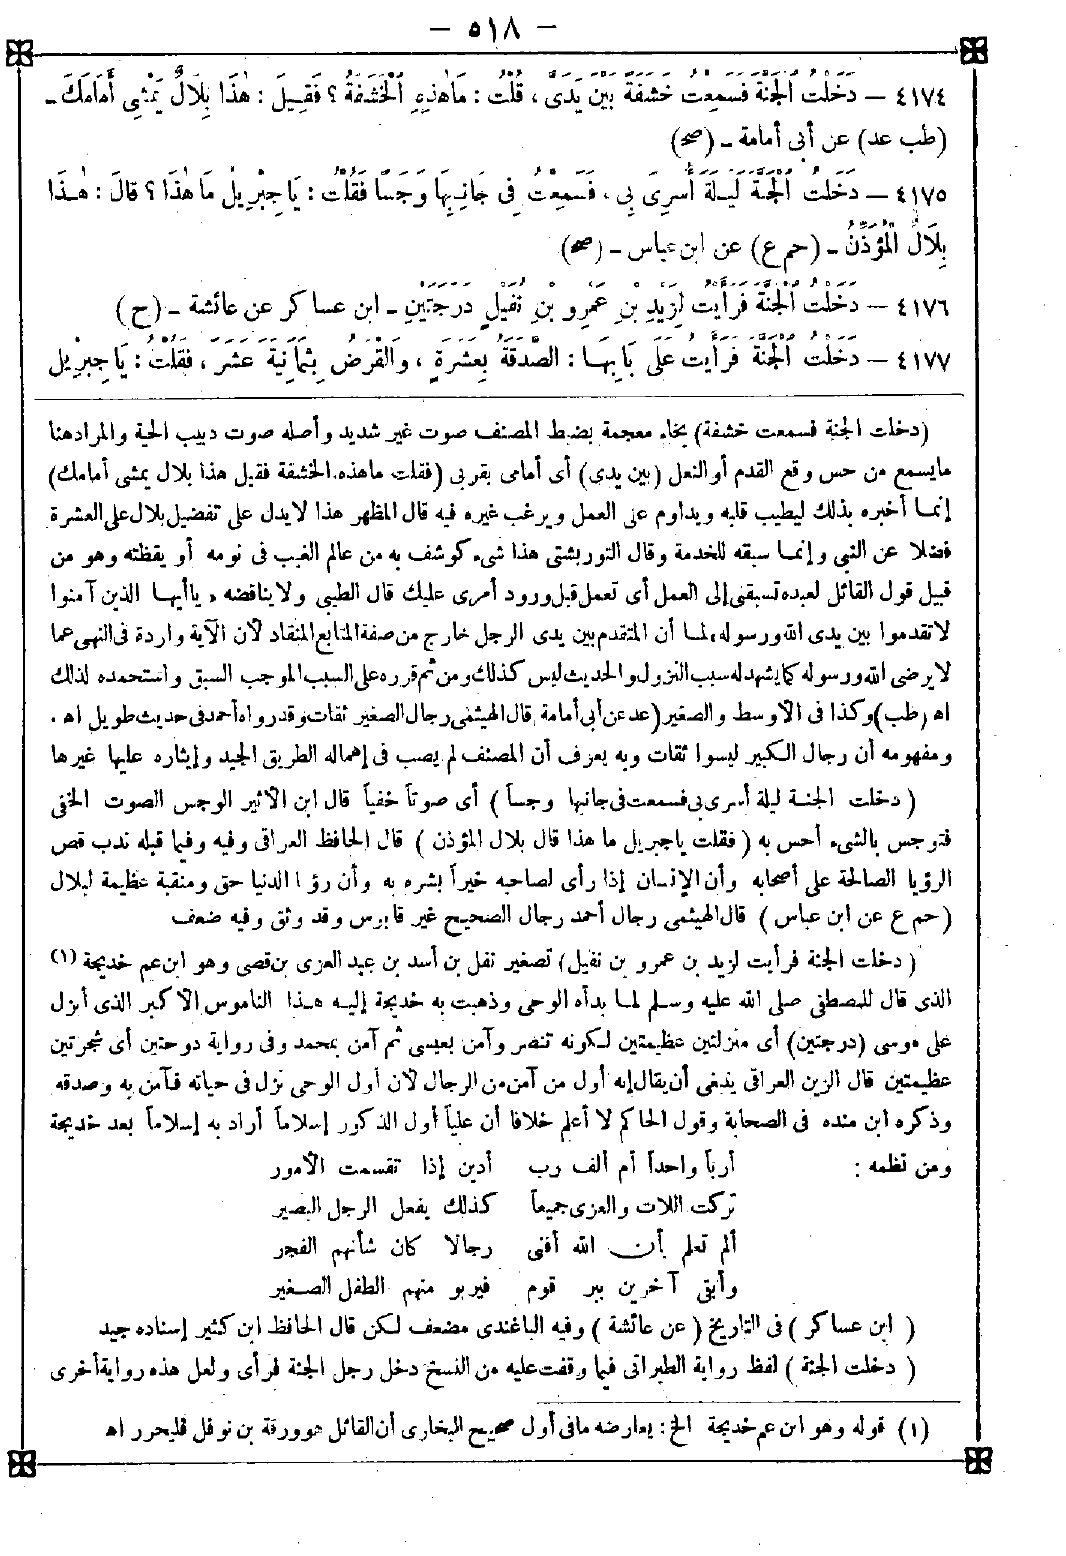 - ٥١٨ -
٤١٧٤ - دَخَلْتُ الْجَنَّةَ فَسَمِعْتُ خَشَفَةً بَيْنَ يَدَىَّ ، قُلْتُ : مَاهٰذِهِ الْخَشَفَةُ ؟ فَقِيلَ : هٰذَا بِلَالٌ يَمْشِى أَمَامَكَ -
(طب عد) عن أبى أمامة - (صح)
٤١٧٥ - دَخَلْتُ الْجَنَّةَ لَيْلَةَ أُسْرِىَ بِى ، فَسَمِعْتُ فِى جَانِبِهَا وَجَسًا فَقُلْتُ : يَاجِبْرِيلُ مَا هٰذَا ؟ قَالَ : هٰذَا
بِلَالٌ الْمُؤَذِّنُ - (حم ع) عن ابن عباس - (صح)
٤١٧٦ - دَخَلْتُ الْجَنَّةَ فَرَأَيْتُ لِزَيْدِ بْنِ عَمْرِو بْنِ نُفَيْلٍ دَرَجَتَيْنِ - ابن عساكر عن عائشة - (ح)
٤١٧٧ - دَخَلْتُ الْجَنَّةَ فَرَأَيْتُ عَلَى بَابِهَا : الصَّدَقَةُ بِعَشَرَةٍ ، وَالْقَرْضُ بِثَمَانِيَةَ عَشَرَ ، فَقُلْتُ : يَاجِبْرِيلُ
(دخلت الجنة فسمعت خشفة) بخاء معجمة بضبط المصنف صوت غير شديد وأصله صوت دبيب الحية والمراد هنا
مايسمع من حس وقع القدم أو النعل (بين يدى) أى أمامى بقربى (فقلت ماهذه الخشفة فقيل هذا بلال يمشى أمامك)
إنما أخبره بذلك ليطيب قلبه ويداوم على العمل ويرغب غيره فيه قال المظهر هذا لايدل على تفضيل بلال على العشرة
فضلا عن النبى وإنما سبقه للخدمة وقال التوربشتى هذا شىء كوشف به من عالم الغيب فى نومه أو يقظته وهو من
قبيل قول القائل لعبده تسبقنى إلى العمل أى تعمل قبل ورود أمرى عليك قال الطيبى ولايناقضه ، ياأيها الذين آمنوا
لاتقدموا بين يدى الله ورسوله ، لما أن المتقدم بين يدى الرجل خارج من صفة المتابع المنقاد لأن الآية واردة فى النهى عما
لايرضى الله ورسوله كما يشهد له سبب النزول والحديث ليس كذلك ومن ثم قرره على السبب الموجب السبق واستحمده لذلك
اه (طب) وكذا فى الأوسط والصغير (عد عن أبى أمامة) قال الهيثمى رجال الصغير ثقات وقد رواه أحمد فى حديث طويل اه .
ومفهومه أن رجال الكبير ليسوا ثقات وبه يعرف أن المصنف لم يصب فى إهماله الطريق الجيد وإيثاره عليها غيرها
( دخلت الجنة ليلة أسرى بى فسمعت فى جانبها وجساً ) أى صوتاً خفياً قال ابن الأثير الوجس الصوت الخفى
فتوجس بالشىء أحس به ( فقلت ياجبريل ما هذا قال بلال المؤذن ) قال الحافظ العراقى وفيه وفيما قبله ندب قص
الرؤيا الصالحة على أصحابه وأن الإنسان إذا رأى لصاحبه خيراً بشره به وأن رؤيا الدنيا حق ومنقبة عظيمة لبلال
(حم ع عن ابن عباس ) قال الهيثمى رجال أحمد رجال الصحيح غير قابوس وقد وثق وفيه ضعف
( دخلت الجنة فرأيت لزيد بن عمرو بن نفيل) تصغير نفل بن أسد بن عبد العزى بن قصى وهو ابن عم خديجة (١)
الذى قال للمصطفى صلى الله عليه وسلم لما بدأه الوحى وذهبت به خديجة إليه هذا الناموس الأكبر الذى أنزل
على موسى (درجتين) أى منزلتين عظيمتين لكونه تنصر وآمن بعيسى ثم آمن بمحمد وفى رواية دوحتين أى شجرتين
عظيمتين قال الزين العراقى ينبغى أن يقال إنه أول من آمن من الرجال لأن أول الوحى نزل فى حياته فآمن به وصدقه
وذكره ابن منده فى الصحابة وقول الحاكم لا أعلم خلافا أن علياً أول الذكور إسلاماً أراد به إسلاماً بعد خديجة
ومن نظمه : أرباً واحداً أم ألف رب أدين إذا تقسمت الأمور
تركت اللات والعزى جميعاً كذلك يفعل الرجل البصير
ألم تعلم بأن الله أفنى رجالا كان شأنهم الفجر
وأبقى آخرين ببر قوم فيربو منهم الطفل الصغير
( ابن عساكر ) فى التاريخ ( عن عائشة ) وفيه الباغندى مضعف لكن قال الحافظ ابن كثير إسناده جيد
( دخلت الجنة ) لفظ رواية الطبرانى فيما وقفت عليه من النسخ دخل رجل الجنة فرأى ولعل هذه رواية أخرى
(١) قوله وهو ابن عم خديجة الخ : يعارضه مافى أول صحيح البخارى أن القائل هو ورقة بن نوفل فليحرر اه